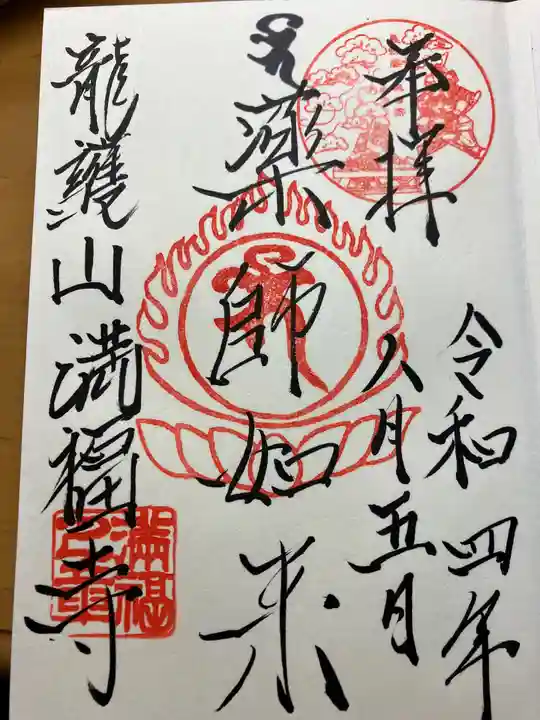 奉拝
令和四年
八月五日
薬師如来
龍護山満福寺
滿福